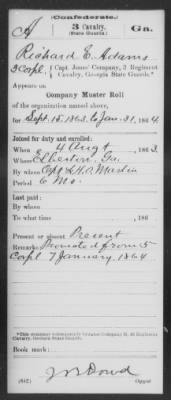 Confederate.
A 3 Cavalry, Ga.
(State Guards.)
Richard E. Adams
3 Corpl, Capt. Jones' Company, 3 Regiment
Cavalry, Georgia State Guards.*
Appears on
Company Muster Roll
of the organization named above,
for Sept. 15, 1863, to Jany. 31, 1864
Joined for duty and enrolled:
When 4 Augt, 1863.
Where Elberton, Ga.
By whom Capt L. H. O. Martin
Period 6 Mo.
Last paid:
By whom
To what time , 186
Present or absent Present
Remarks: Promoted from 5
Corpl 7 January, 1864
Cavalry, Georgia State Guards.
Book mark:
(642) Copyist